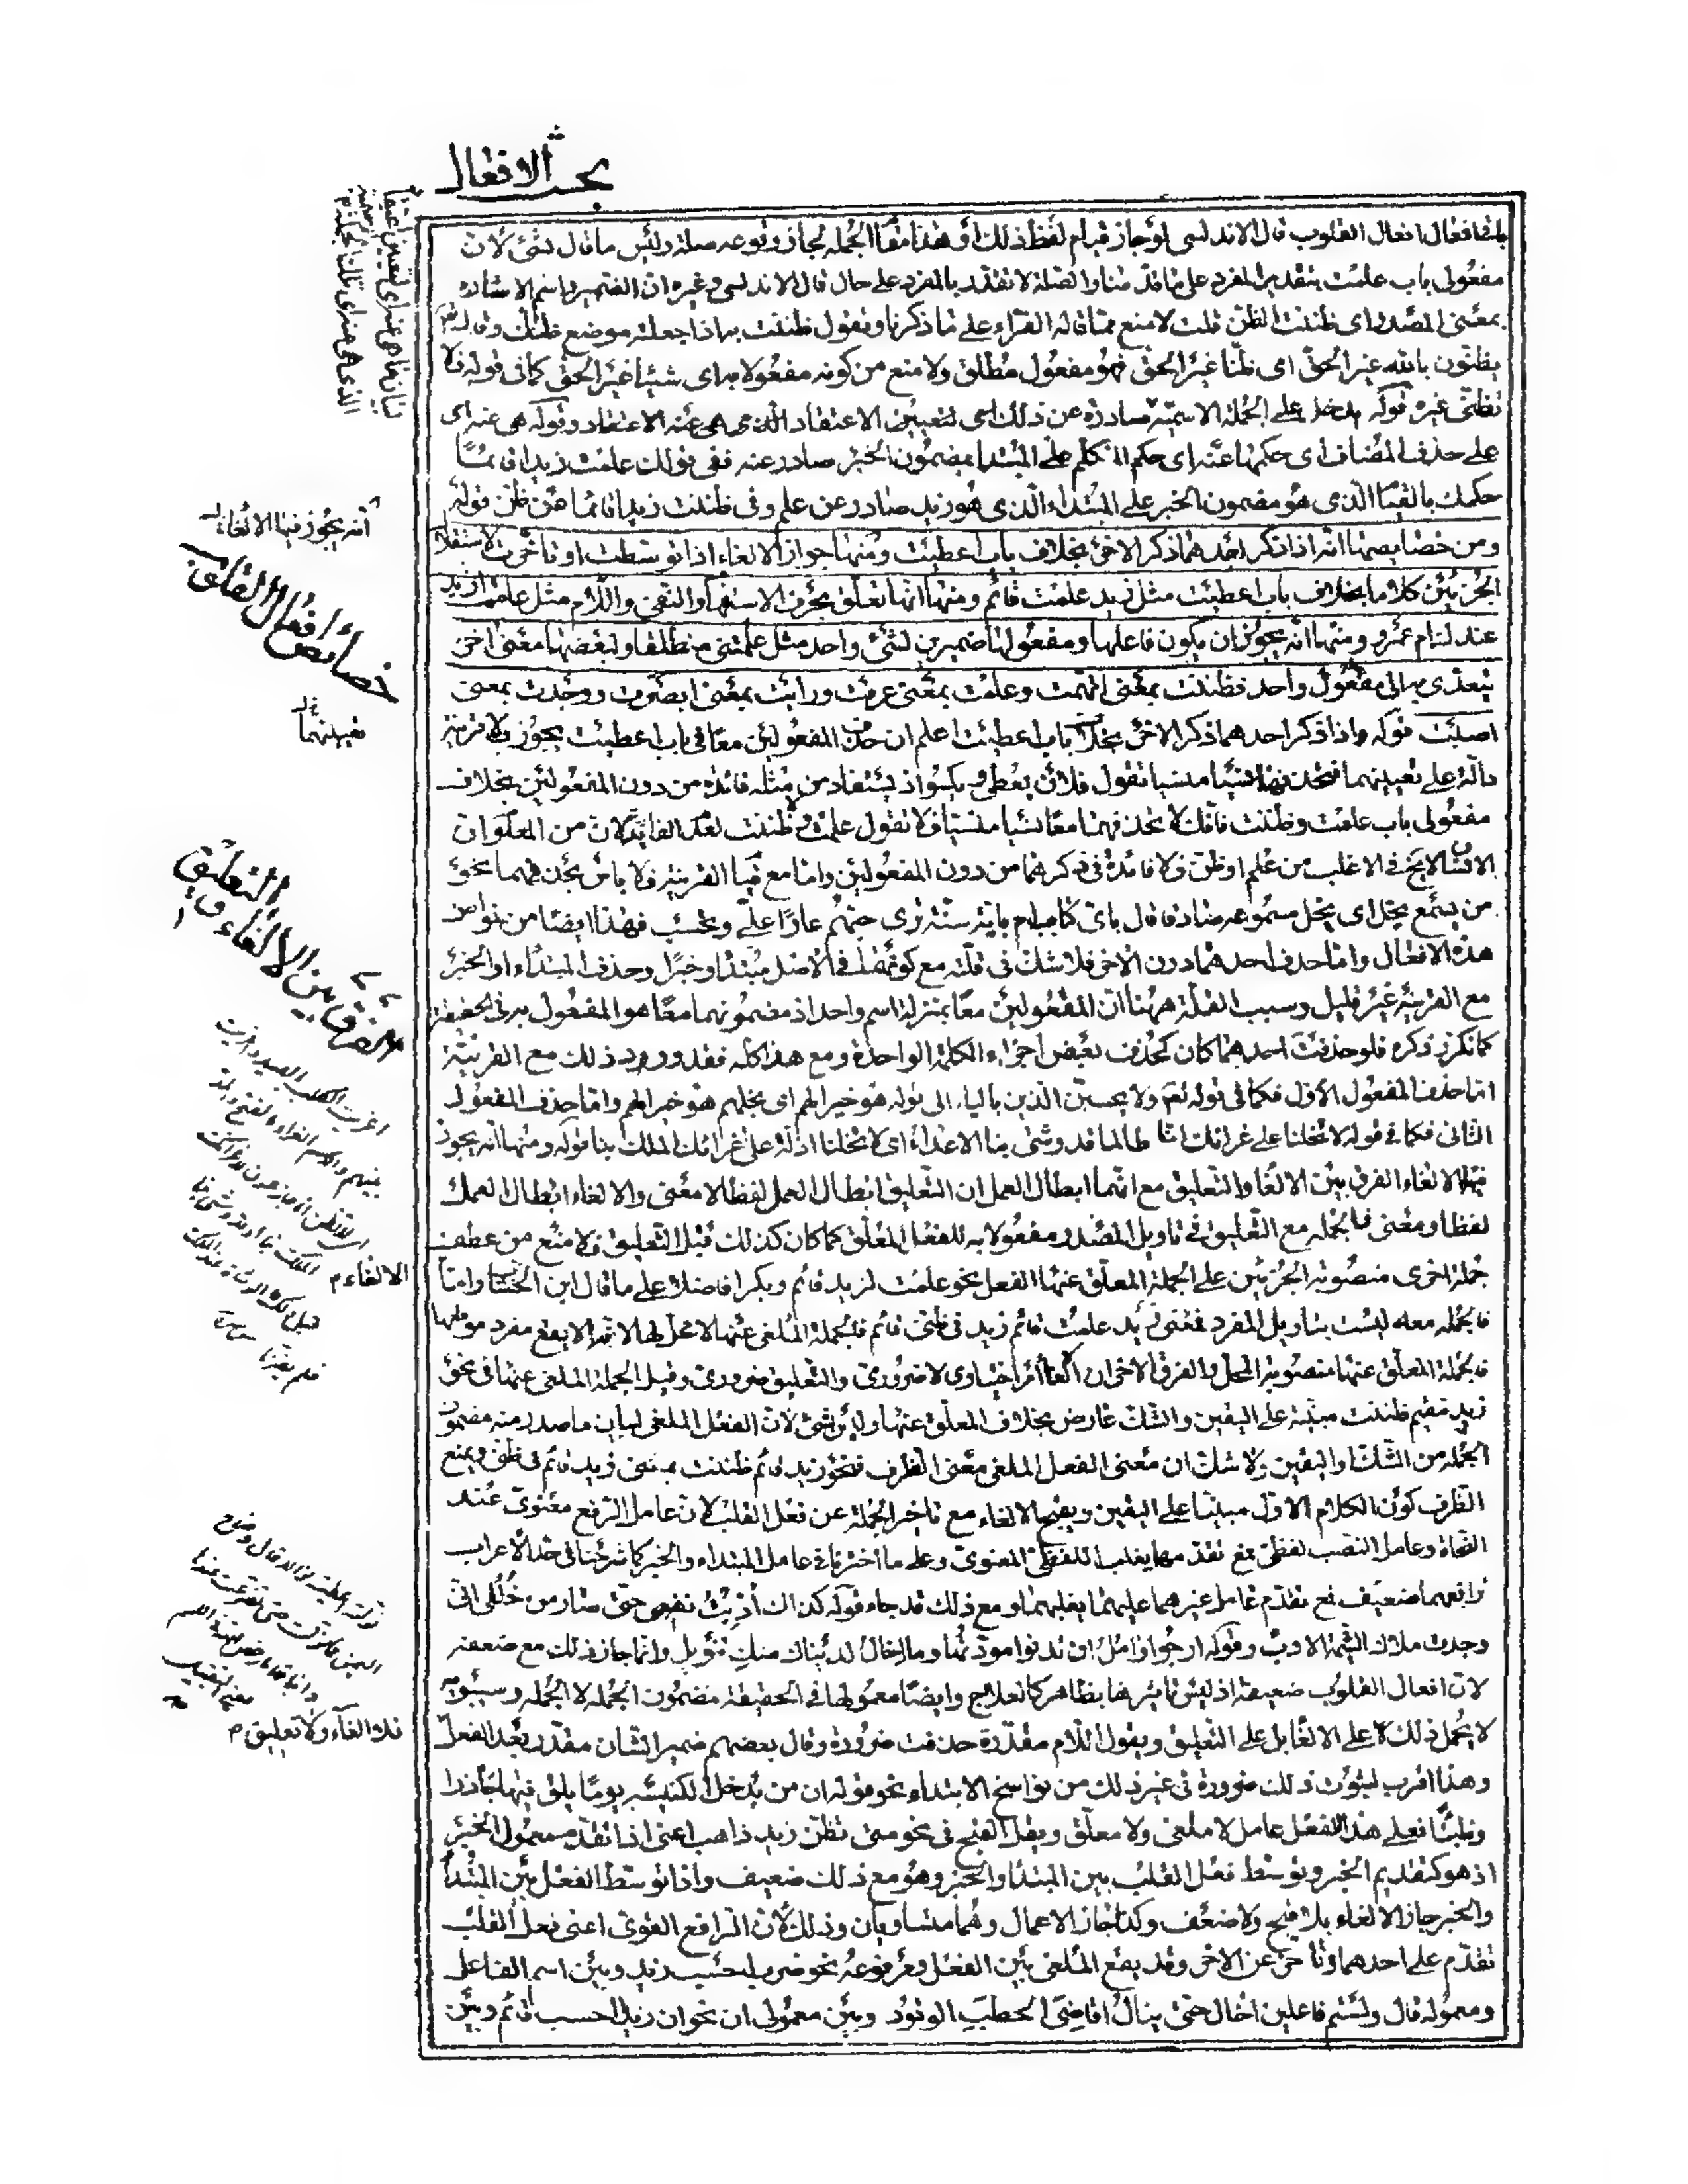 بحث الافعال
باقى افعال القلوب قال الاندلسى لو جاز قيام لفظ ذلك او هذا مقام الجملة لجاز وقوعه صلة وليس ما قال بشئ لان
مفعولى باب علمت بتقدير المفرد على ما قدمنا والصلة لا تقدر بالمفرد على حال قال الاندلسى وغيره ان الضمير واسم الاشارة
بمعنى المصدر اى ظننت الظن قلت لا منع مما قاله الفراء على ما ذكرنا وتقول ظننت به اذا جعلته موضع ظنك وقال تعم
يظنون بالله غير الحق اى ظنا غير الحق فهو مفعول مطلق ولا منع من كونه مفعولا به اى شيئا غير الحق كما فى قوله فلا
تظنى غيره قوله يدخل على الجملة الاسمية صادرة عن ذلك اى لتعيين الاعتقاد الذى هى عنه الاعتقاد وقوله هى عنه اى
على حذف المضاف اى حكمها عنه اى حكم المتكلم على المبتدا بمضمون الخبر صادر عنه ففى قولك علمت زيدا قائما
حكمك بالقيام الذى هو مضمون الخبر على المبتداء الذى هو زيد صادر عن علم وفى ظننت زيدا قائما عن ظن قوله
ومن خصايصها انه اذا ذكر احدهما ذكر الاخر بخلاف باب اعطيت ومنها جواز الالغاء اذا توسطت او تاخرت لاستقلال
الجزئين كلاما بخلاف باب اعطيت مثل زيد علمت قائم ومنها انها تعلق بحرف الاستفهام والنفى واللام مثل علمت ازيد
عندك ام عمرو ومنها انه يجوز ان يكون فاعلها ومفعولها ضميرين لشئ واحد مثل علمتنى منطلقا ولبعضها معنى اخر
يتعدى به الى مفعول واحد فظننت بمعنى اتهمت وعلمت بمعنى عرفت ورايت بمعنى ابصرت ووجدت بمعنى
اصبت قوله واذا ذكر احدهما ذكر الاخر بخلاف باب اعطيت اعلم ان حذف المفعولين معا فى باب اعطيت يجوز بلا قرينة
دالة على تعيينهما فتحذفهما نسيا منسيا تقول فلان يعطى ويكسو اذ يستفاد من مثله فائدة من دون المفعولين بخلاف
مفعولى باب علمت وظننت فانك لا تحذفهما معا نسيا منسيا فلا تقول علمت وظننت لعدم الفايدة لان من المعلوم ان
الانسان لا يخ فى الاغلب من علم او ظن فلا فائدة فى ذكرهما من دون المفعولين واما مع قيام القرينة فلا باس بحذفهما نحو
من يسمع يخل اى يخل مسموعه صادقا قال باى كتاب ام باية سنة ترى حبهم عارا على وتحسب فهذا ايضا من خواص
هذه الافعال واما حذف احدهما دون الاخر فلا شك فى قلته مع كونهما فى الاصل مبتدا وخبرا وحذف المبتداء او الخبر
مع القرينة غير قليل وسبب القلة ههنا ان المفعولين معا بمنزلة اسم واحد اذ مضمونهما معا هو المفعول به فى الحقيقة
كما تكرر ذكره فلو حذفت احدهما كان كحذف بعض اجزاء الكلمة الواحدة ومع هذا كله فقد ورد ذلك مع القرينة
اما حذف المفعول الاول فكما فى قوله تعم ولا يحسبن الذين بالياء الى قوله هو خيرا لهم اى بخلهم هو خيرا لهم واما حذف المفعول
الثانى فكما فى قوله لا تخلنا على غراتك انا طالما قد وشى بنا الاعداء اى لا تخلنا اذلة على غراتك الملك بنا قوله ومنها انه يجوز
فيها الالغاء الفرق بين الالغاء والتعليق مع انهما ابطال العمل ان التعليق ابطال العمل لفظا لا معنى والالغاء ابطال العمل
لفظا ومعنى فالجملة مع التعليق فى تاويل المصدر مفعولا به للفعل المعلق كما كان كذلك قبل التعليق فلا منع من عطف
جملة اخرى منصوبة الجزئين على الجملة المعلق عنها الفعل نحو علمت لزيد قائم وبكرا فاضلا على ما قال ابن الخشاب واما
فالجملة معه ليست بتاويل المفرد فمعنى زيد علمت قائم زيد فى ظنى قائم فالجملة الملغى عنها لا محل لها لانه لا يقع مفرد موقعها
فالجملة المعلق عنها منصوبة المحل والفرق الاخر ان الالغاء امر اختيارى لا ضرورى والتعليق ضرورى وقيل الجملة الملغى عنها فى نحو
زيد مقيم ظننت مبنية على اليقين والشك عارض بخلاف المعلق عنها وليس بشئ لان الفعل الملغى لبيان ما صدر منه مضمون
الجملة من الشك او اليقين ولا شك ان معنى الفعل الملغى معنى الظرف فنحو زيد قائم ظننت بمعنى زيد قائم فى ظنى ويمنع
الظرف كون الكلام الاول مبنيا على اليقين ويقبح الالغاء مع تاخر الجملة عن فعل القلب لان عامل الرفع معنوى عند
النحاة وعامل النصب لفظى فمع تقدمها يغلب اللفظى المعنوى وعلى ما اخترنا فى عامل المبتداء والخبر كما شرحنا فى حد الاعراب
ترافعهما ضعيف فمع تقدم عامل غيرهما عليهما يغلبهما ومع ذلك قد جاء قوله كذاك ادبت نفسى حتى صار من خلقى انى
وجدت ملاك الشيمة الادب وقوله ارجو وامل ان تدنو مودتها وما اخال لدينا منك تنويل وانما جاز ذلك مع ضعفه
لان افعال القلوب ضعيفة اذ ليس تاثيرها بظاهر كالعلاج وايضا معمولها فى الحقيقة مضمون الجملة لا الجملة وسيبويه
لا يحمل ذلك لا على الالغاء بل على التعليق ويقول اللام مقدرة حذفت ضرورة وقال بعضهم ضمير الشان مقدر بعد الفعل
وهذا اقرب لثبوت ذلك ضرورة فى غير ذلك من نواسخ الابتداء نحو قوله ان من يدخل الكنيسة يوما يلق فيها جاذرا
وظباء فعلى هذا الفعل عامل لا ملغى ولا معلق ويقل القبح فى نحو متى تظن زيد ذاهب اعنى اذا تقدم معمول الخبر
اذ هو كتقديم الخبر وتوسط فعل القلب بين المبتدا والخبر وهو مع ذلك ضعيف واذا توسط الفعل بين المبتدا
والخبر جاز الالغاء بلا قبح ولا ضعف وكذا جاز الاعمال وهما متساويان وذلك لان الرافع القوى اعنى فعل القلب
تقدم على احدهما وتاخر عن الاخر وقد يقع الملغى بين الفعل ومرفوعه نحو ضرب احسب زيد وبين اسم الفاعل
ومعموله قال ولستم فاعلين اخال حتى ينال اقاصى الحطب الوقود وبين معمولى ان نحو ان زيدا احسب قائم وبين
انه يجوز فيها الالغاء
خصائص افعال القلوب
الفرق بين الالغاء والتعليق
الالغاء م
فلا الغاء ولا تعليق م